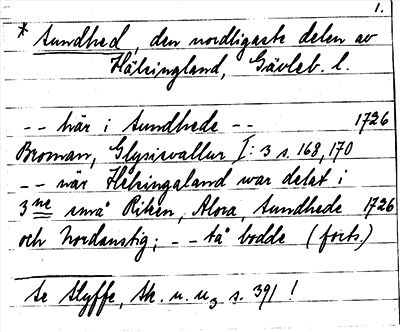 1.
* Sundhed, den nordligaste delen av
Hälsingland, Gävleb. l.
-- här i Sundhede -- 1726
Broman, Glysisvallur I:3 s. 168, 170
-- när Helsingaland war delat i
3ne små Riken, Alora, Sundhede 1726
och Nordanstig; -- då bodde (forts.)
Se Styffe, Sk. u. u3 s. 391!